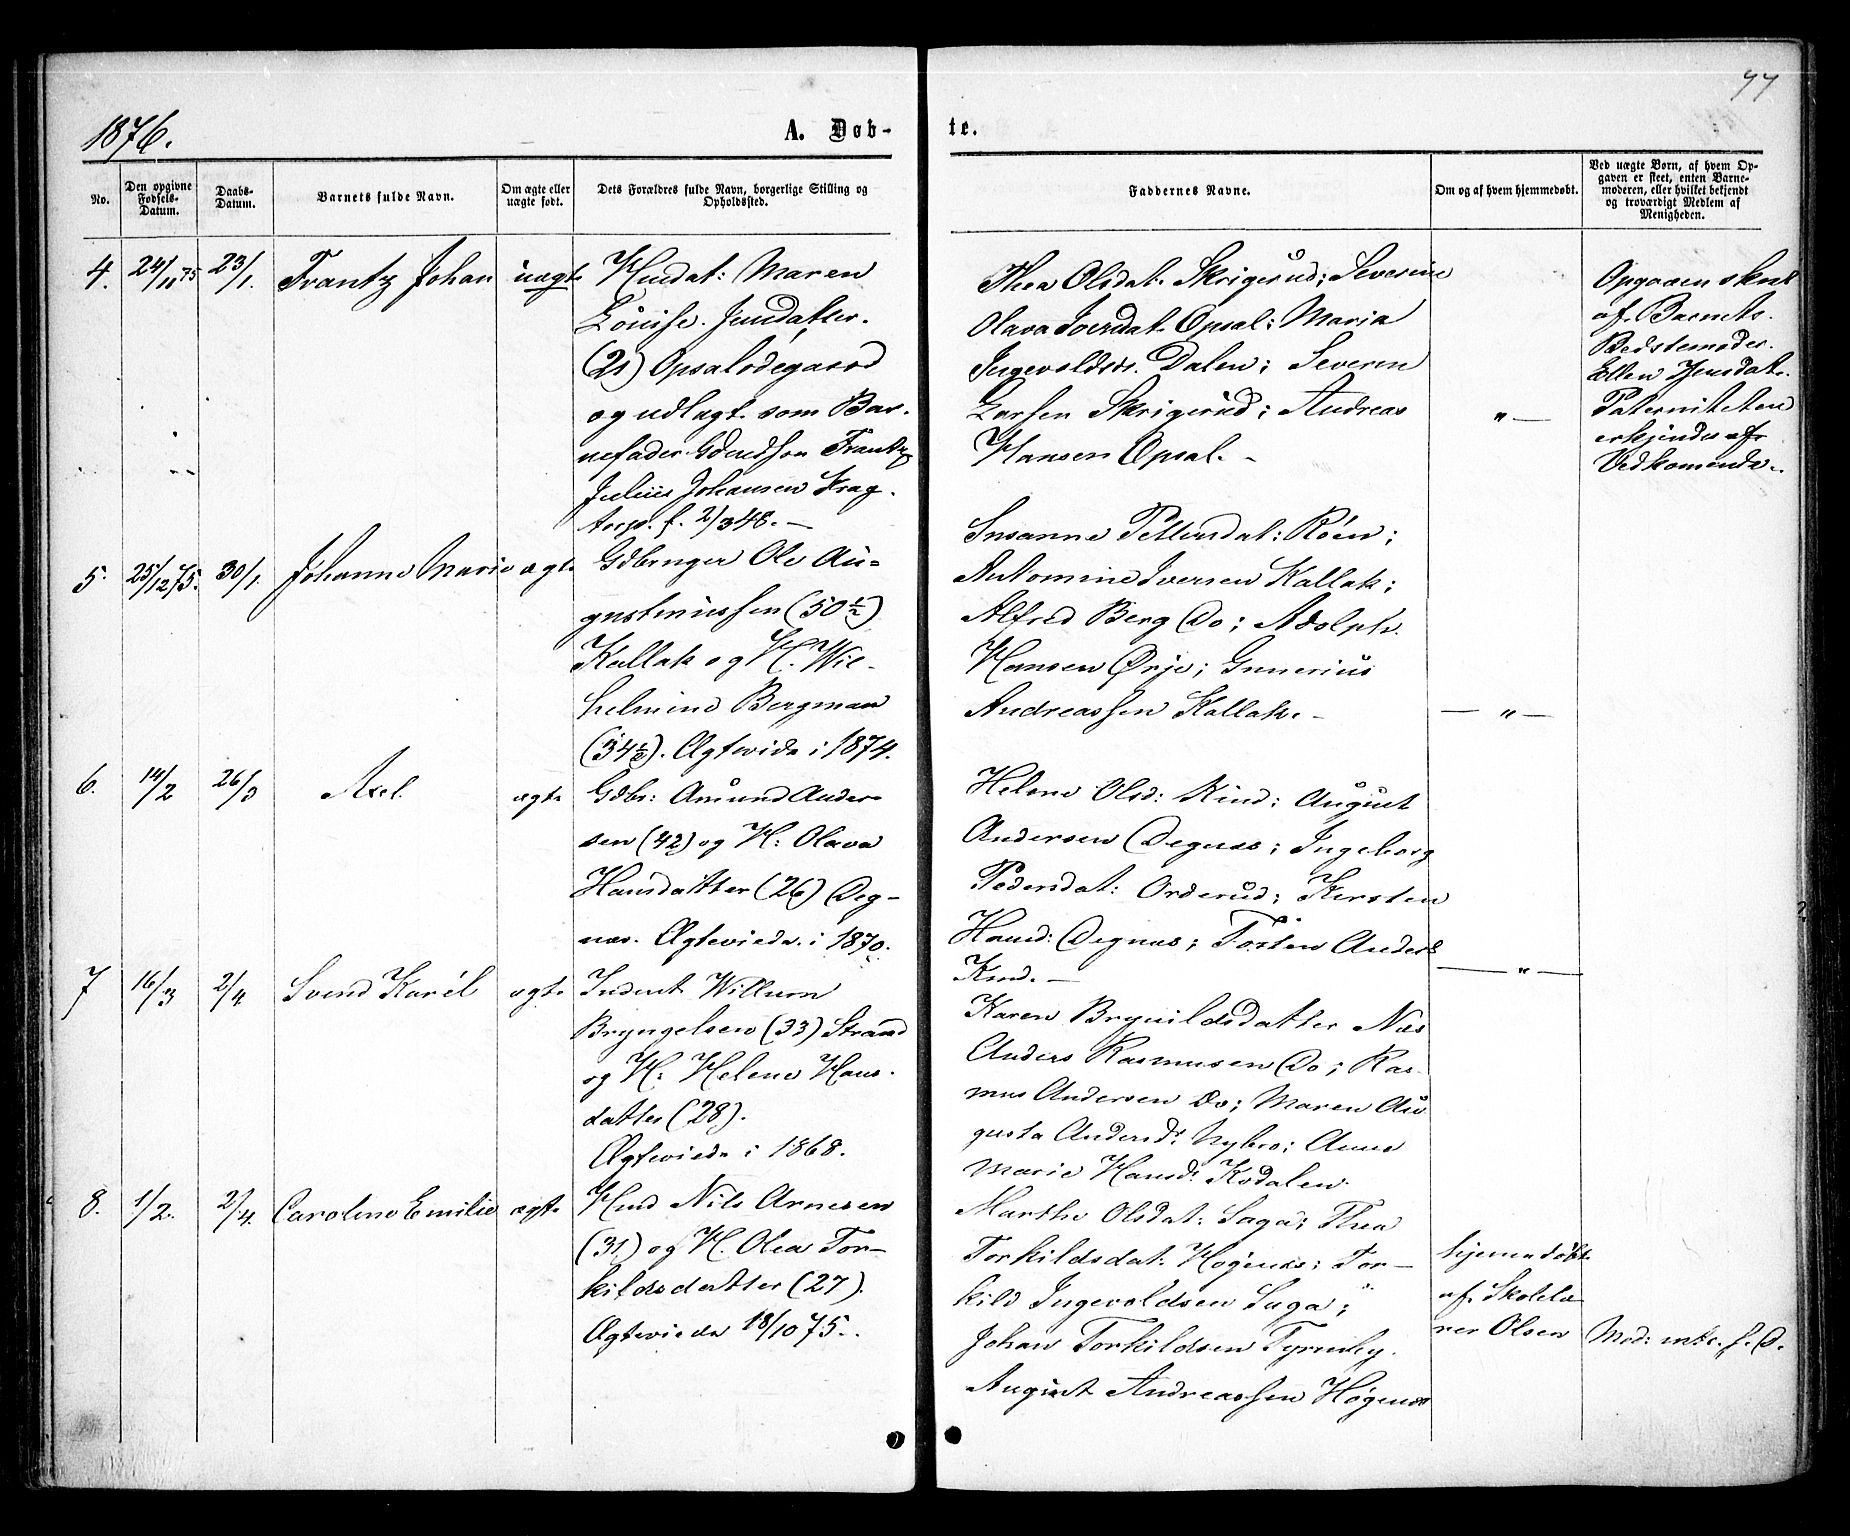 77
1876.
A. Døb-
te.
No.
Den opgivne Fødsels-Datum.
Daabs-Datum.
Barnets fulde Navn.
Om ægte eller uægte født.
Dets Forældres fulde Navn, borgerlige Stilling og Opholdssted.
Faddernes Navne.
Om og af hvem hjemmedøbt.
Ved uægte Børn, af hvem Opgaven er skeet, enten Barnemoderen, eller hvilket bekjendt og troværdigt Medlem af Menigheden.
4. 24/11 75 23/1. Frantz Johan uægte
Husdat: Maren
Lóuise. Jensdatter.
(21) Opsalødegaard
og udlagt som Bar.
nefader Gdmdsøn Frantz
Juliús Johansen Krag.
torp. f. 2/3 48. —
Thea Olsdat. Skrigerúd; Severine
Olava Iversdat. Opsal; Maria
Ingevoldsds. Dalen; Severin
Larsen Skrigerúd; Andreas
Hansen Opsal. -
" —
Opgaven skeet
af Barnets
Bedstemoder
Ellen Jensdat.
Paterniteten
erkjendes af
Vedkomende.
5. 25/12 75. 30/1. Johanne Marie ægte
Gdbruger Ole Aú=
gustinússen (50 1/2)
Kallak og H. Wil-
helmine Bergman
(34 1/2). Ægteviede i 1874.
Susanne Pettersdat: Róen;
Antomine Iversen Kallak;
Alfred Berg Do; Adolph
Hansen Ørje; Gunerius
Andreassen Kallak. -
— " —
6. 14/2 26/3 Axel. ægte
Gdbr: Amúnd Ander-
sen (42) og H: Olava
Hansdatter (26) Deg-
næs. Ægteviede i 1870.
Helene Olsd: Kind; Aúgúst
Andersen Degnæs; Ingeborg
Pedersdat: Orderúd; Kirsten
Hansd: Degnæs; Tosten Anders.
Kind. —
— " —
7 16/3 2/4 Svend Karél ægte
Inderst Willum
Bryngelsen (33) Strand
og H: Helene Hans-
datter (28).
Ægteviede i 1868.
Karen Brynildsdatter Næs
Anders Rasmusen Do; Ras-
mus Andersen Do; Maren Aú
gusta Andersd: Nybro; Anne
Marie Hansd: Kodalen.
8. 1/2. 2/4. Caroline Emilie ægte
Husmd Nils Arnesen
(31) og H. Olea Tor-
kildsdatter (27).
Ægteviede 18/10 75.
Marthe Olsdat: Saga; Thea
Torkildsdat: Høgenæs; Tor-
kild Ingevoldsen Saga;
Johan Torkildsen Tyrneby.
August Andreassen Høgenæs
hjemmedøbt
af Skolelæ
rer Olsen
Mod: intr. f. D.